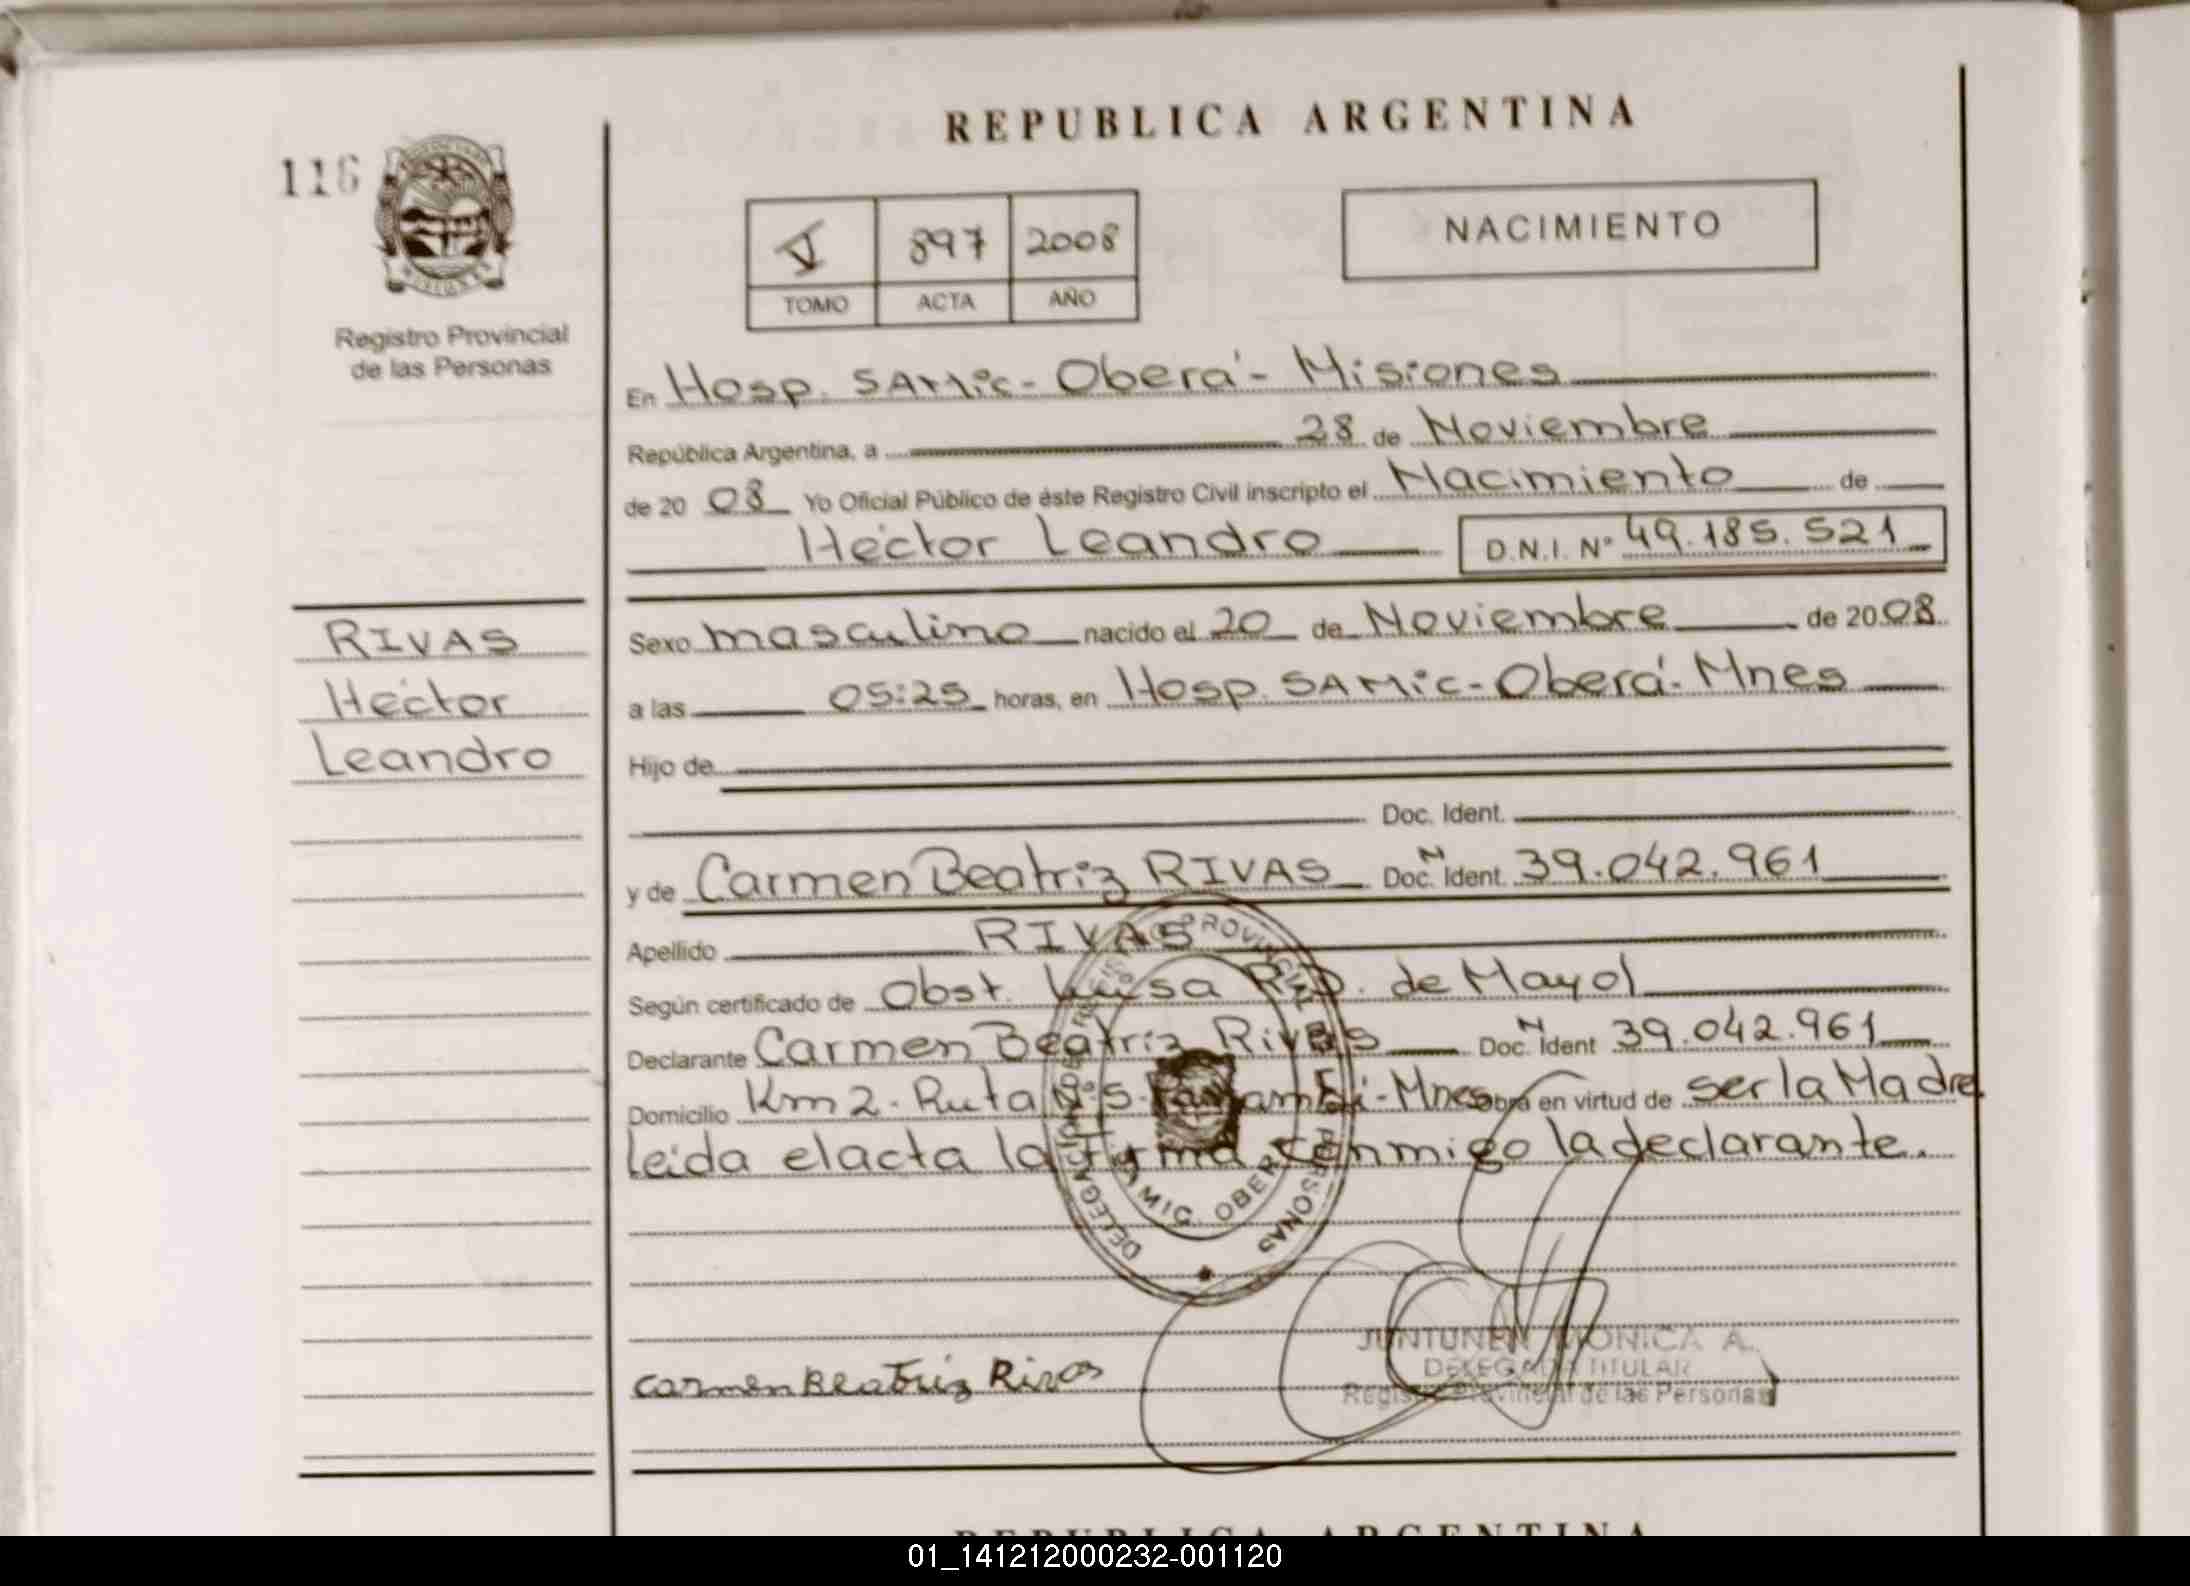 REPUBLICA ARGENTINA
116
NACIMIENTO
V 897 2008
TOMO ACTA AÑO
Registro Provincial
de las Personas
En Hosp. SAMic - Oberá - Misiones
República Argentina, a 28 de Noviembre
de 20 08 Yo Oficial Público de éste Registro Civil inscripto el Nacimiento de
Héctor Leandro D.N.I. Nº 49.185.521
RIVAS
Héctor
Leandro
Sexo masculino nacido el 20 de Noviembre de 20 08
a las 05:25 horas, en Hosp. SAMic - Oberá - Mnes
Hijo de
Doc. Ident.
y de Carmen Beatriz RIVAS Doc. N Ident. 39.042.961
Apellido RIVAS
Según certificado de Obst. Luisa R. D. de Mayol
Declarante Carmen Beatriz Rivas Doc. N Ident 39.042.961
Domicilio Km 2 - Ruta Nº 5 - Panambí - Mnes obra en virtud de ser la Madre
leida el acta la firma conmigo la declarante.
DELEGACION REGISTRO PROVINCIAL DE LAS PERSONAS
SAMIC. OBERA
Carmen Beatriz Rivas
JUNTUNEN MONICA A.
DELEGADA TITULAR
Registro Provincial de las Personas
REPUBLICA ARGENTINA
01_141212000232-001120